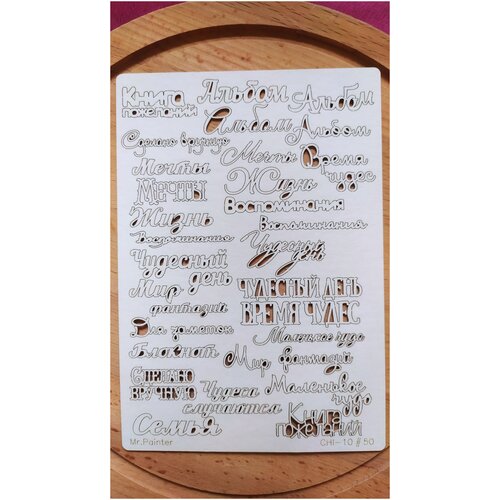 Книга пожеланий
Альбом
Альбом
Альбом
Альбом
Сделано вручную
Мечты
Мечты
Время чудес
МЕЧТЫ
Жизнь
Воспоминания
Жизнь
Воспоминания
Воспоминания
Чудесный день
Чудесный день
Мир фантазий
ЧУДЕСНЫЙ ДЕНЬ
ВРЕМЯ ЧУДЕС
Для заметок
Маленькое чудо
Блокнот
Мир фантазий
СДЕЛАНО ВРУЧНУЮ
Чудеса случаются
Маленькое чудо
Семья
Книга пожеланий
Mr.Painter
CHI-10 # 50